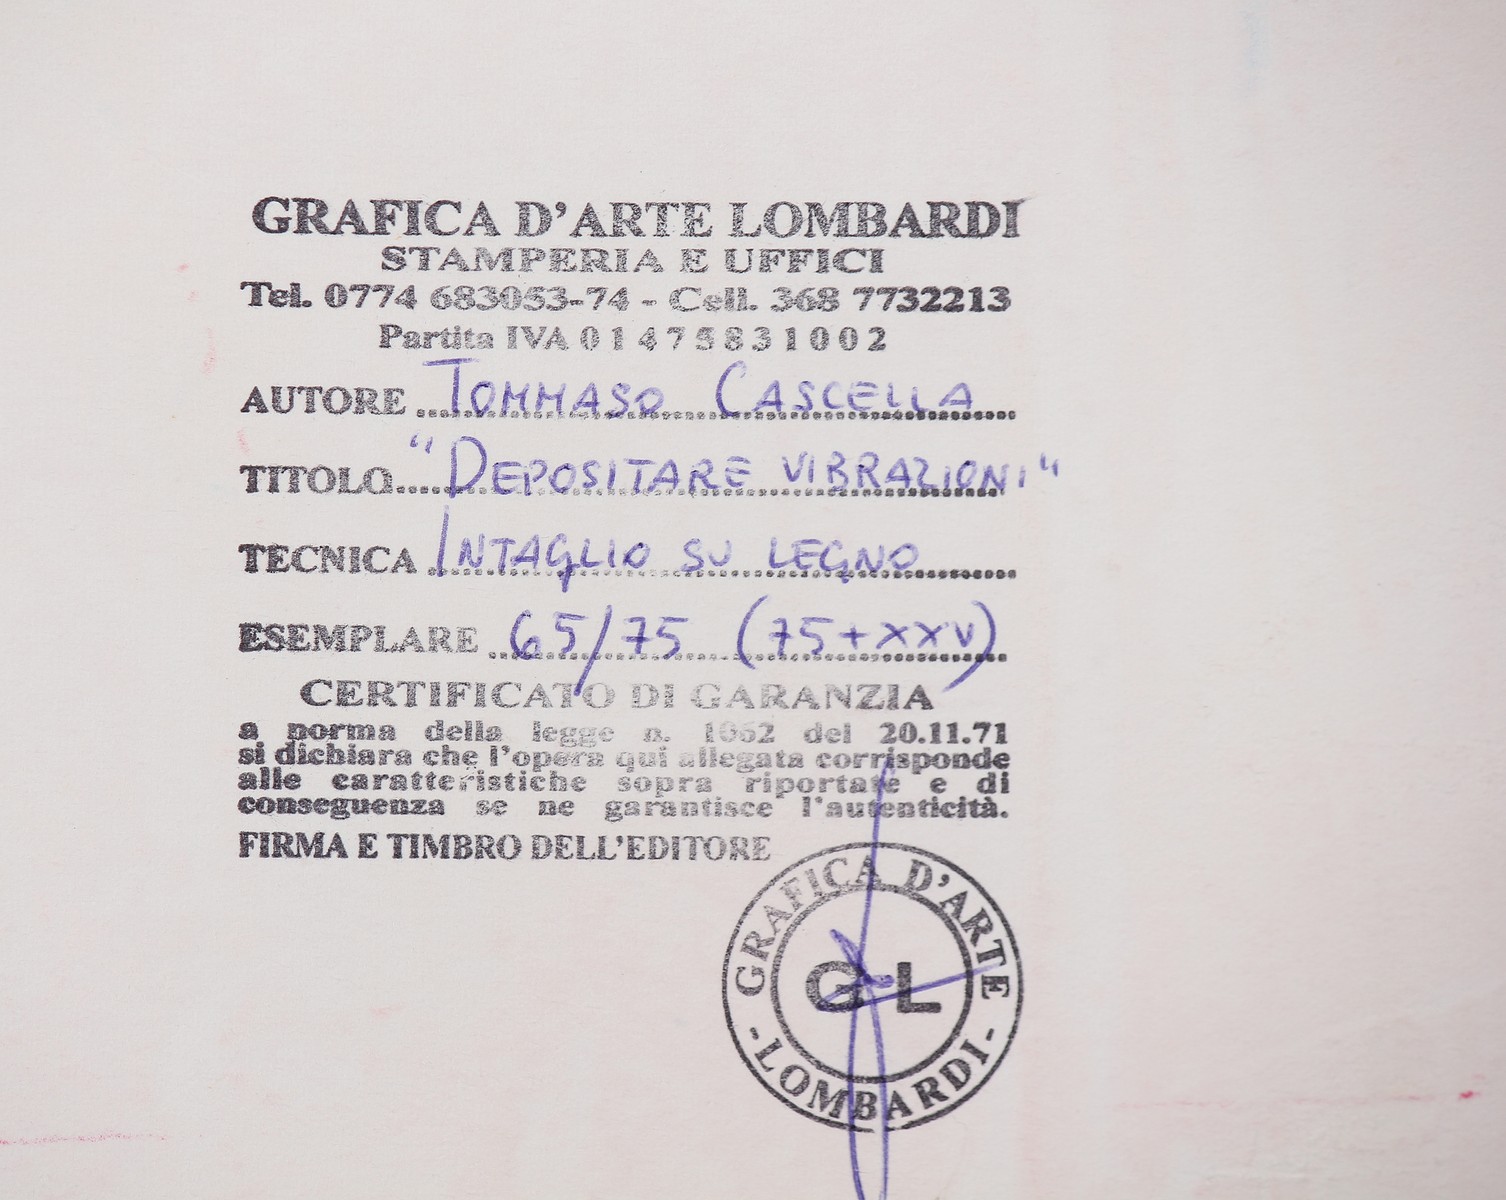 GRAFICA D'ARTE LOMBARDI
STAMPERIA E UFFICI
Tel. 0774 683053-74 - Cell. 368 7732213
Partita IVA 01475831002
AUTORE TOMMASO CASCELLA
TITOLO "DEPOSITARE VIBRAZIONI"
TECNICA INTAGLIO SU LEGNO
ESEMPLARE 65/75 (75+XXV)
CERTIFICATO DI GARANZIA
a norma della legge n. 1062 del 20.11.71
si dichiara che l'opera qui allegata corrisponde
alle caratteristiche sopra riportate e di
conseguenza se ne garantisce l'autenticità.
FIRMA E TIMBRO DELL'EDITORE
GRAFICA D'ARTE
GL
- LOMBARDI -